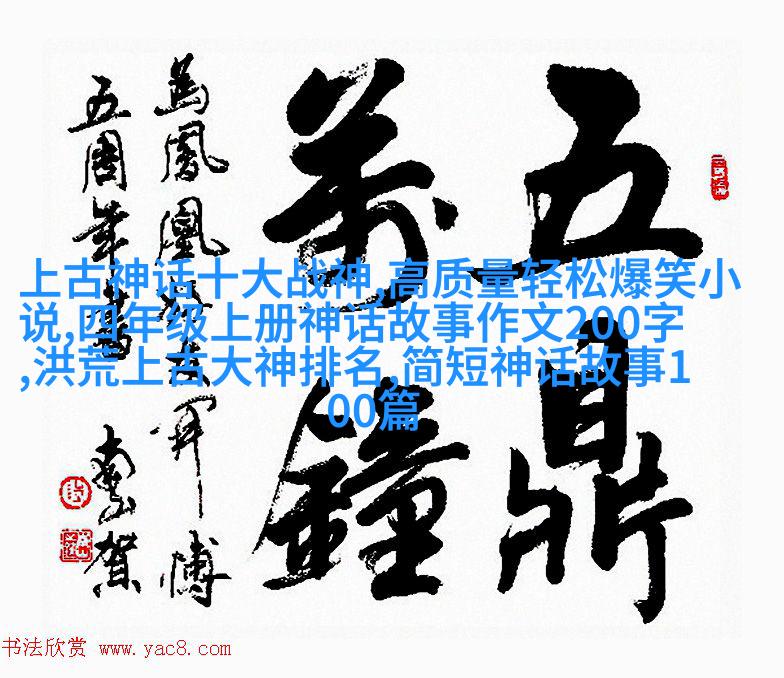 五鼎
萬鐘
鳳凰
开博
五周年
賀
上古神话十大战神,高质量轻松爆笑小
说,四年级上册神话故事作文200字
,洪荒上古大神排名,简短神话故事1
00篇
书法欣赏 www.yac8.com